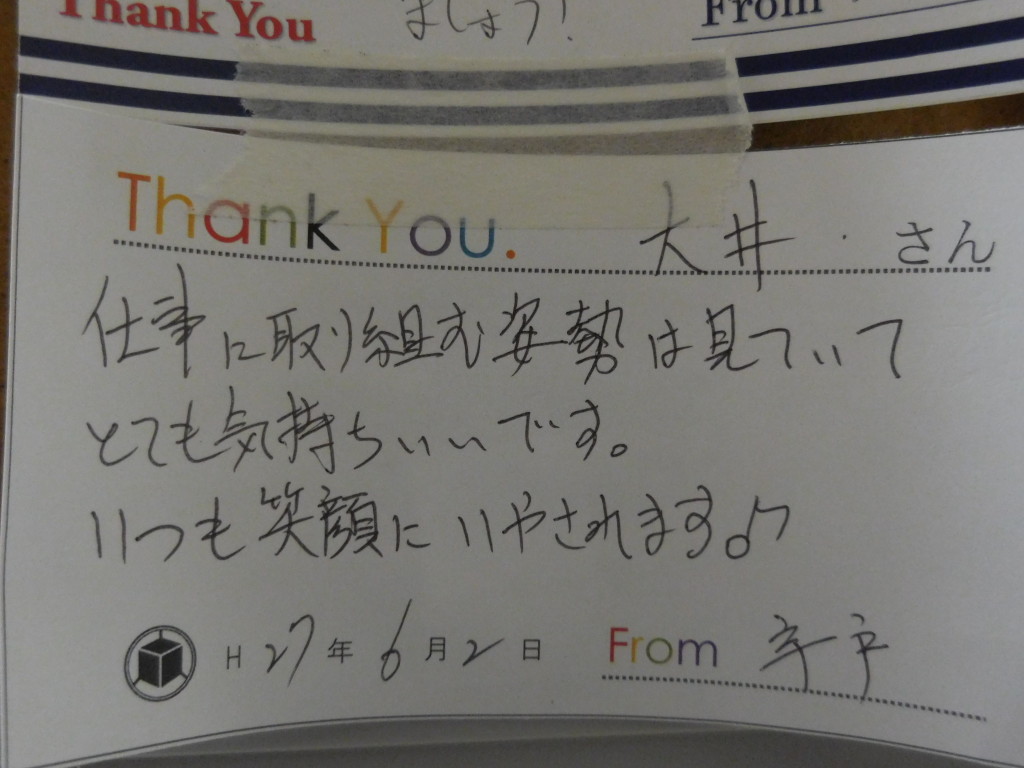 Thank You
ましょう!
From
Thank You.
大井 さん
仕事に取り組む姿勢は見ていて
とても気持ちいいです。
いつも笑顔にいやされます♪
H27年6月2日
From